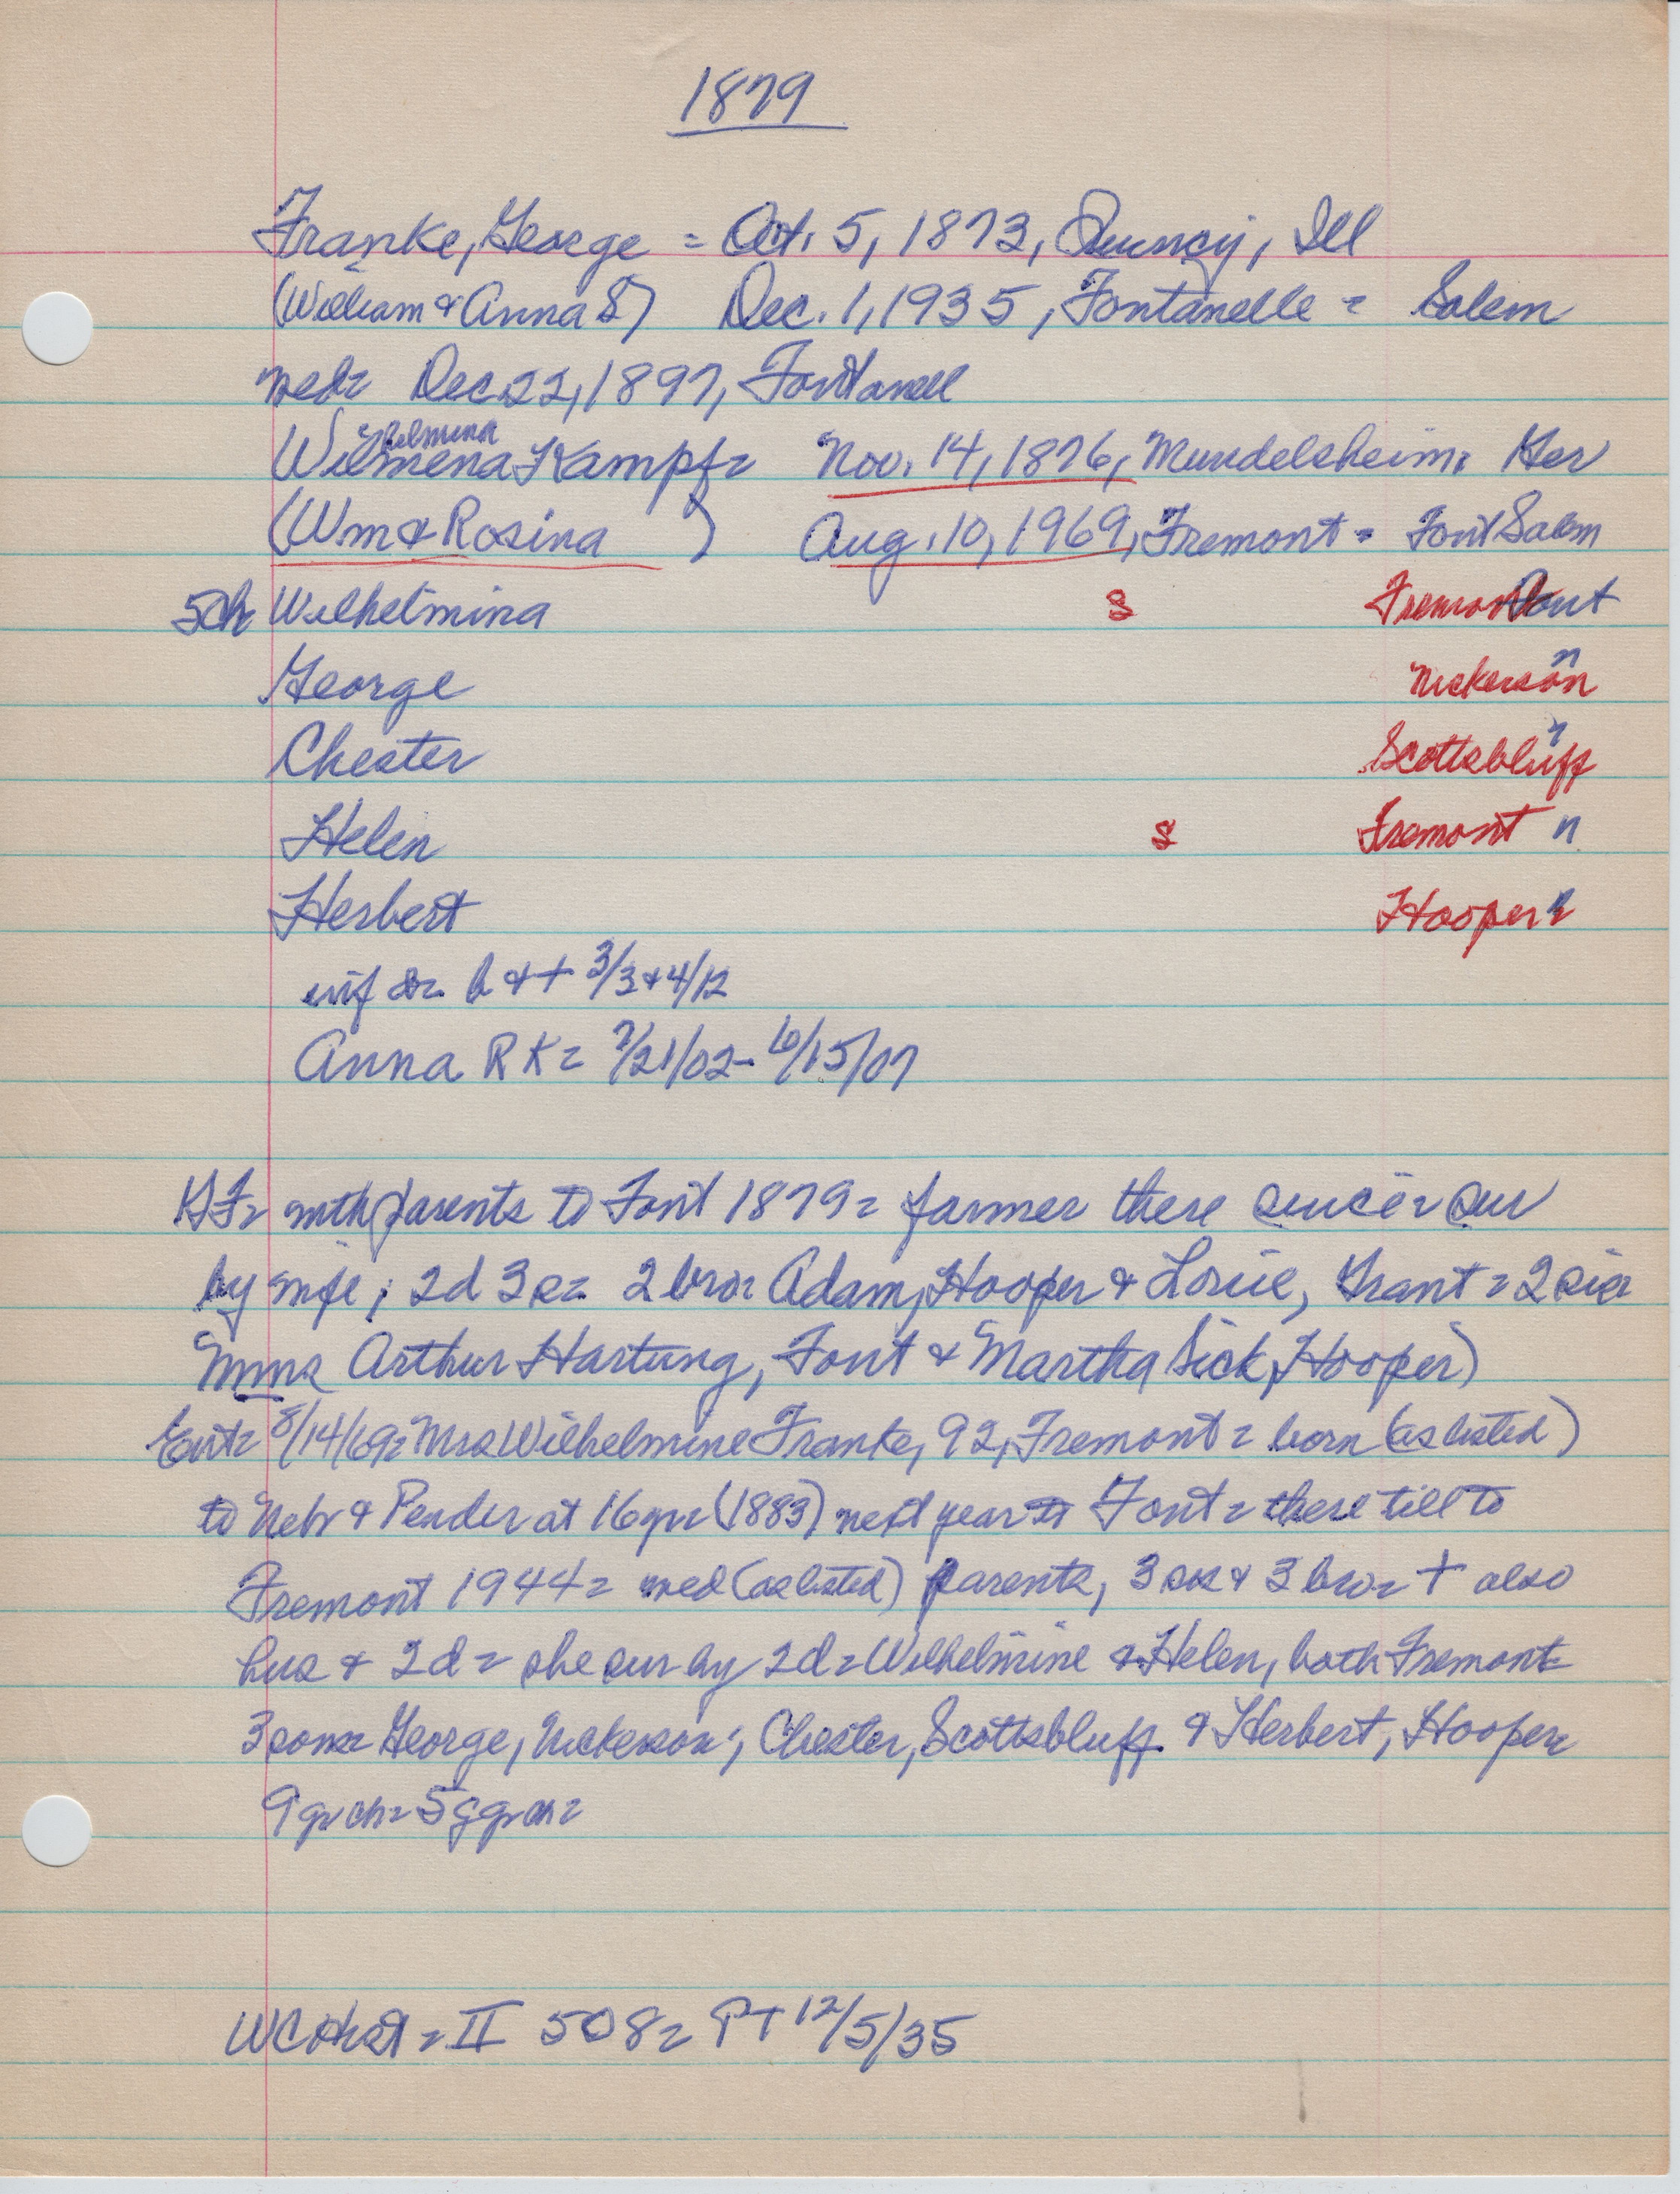 1879
Franke, George = Oct. 5, 1873, Quincy, Ill
(William & Anna S) Dec. 1, 1935, Fontanelle = Salem
wed= Dec 22, 1897, Fontanell
helmina
Wilmena Kampf= Nov. 14, 1876, Mundelsheim, Ger
(Wm & Rosina ) Aug. 10, 1969, Fremont = Font Salem
5ch Wilhelmina s Fremont Font
George Nickerson "
Chester Scottsbluff "
Helen s Fremont "
Herbert Hooper "
inf da= b & + 3/3 & 4/12
Anna R K= 7/21/02 - 6/15/07
GF= with parents to Font 1879= farmer there since= sur
by wife; 2d 3s= 2 bro= Adam, Hooper & Louie, Grant = 2 sis
Mmes Arthur Hartung, Font & Martha Sick, Hooper)
8/14/69= Mrs Wilhelmine Franke, 92, Fremont = born (as listed)
to Nebr & Pender at 16yr= (1883) next year to Font= there till to
Fremont 1944= wed (as listed) parents, 3 sis & 3 bro= + also
hus & 2d = she sur by 2d= Wilhelmine & Helen, both Fremont
3 sons= George, Nickerson; Chester, Scottsbluff & Herbert, Hooper=
9 grch= 5 ggrch=
WCoHist = II 508= PT 12/5/35